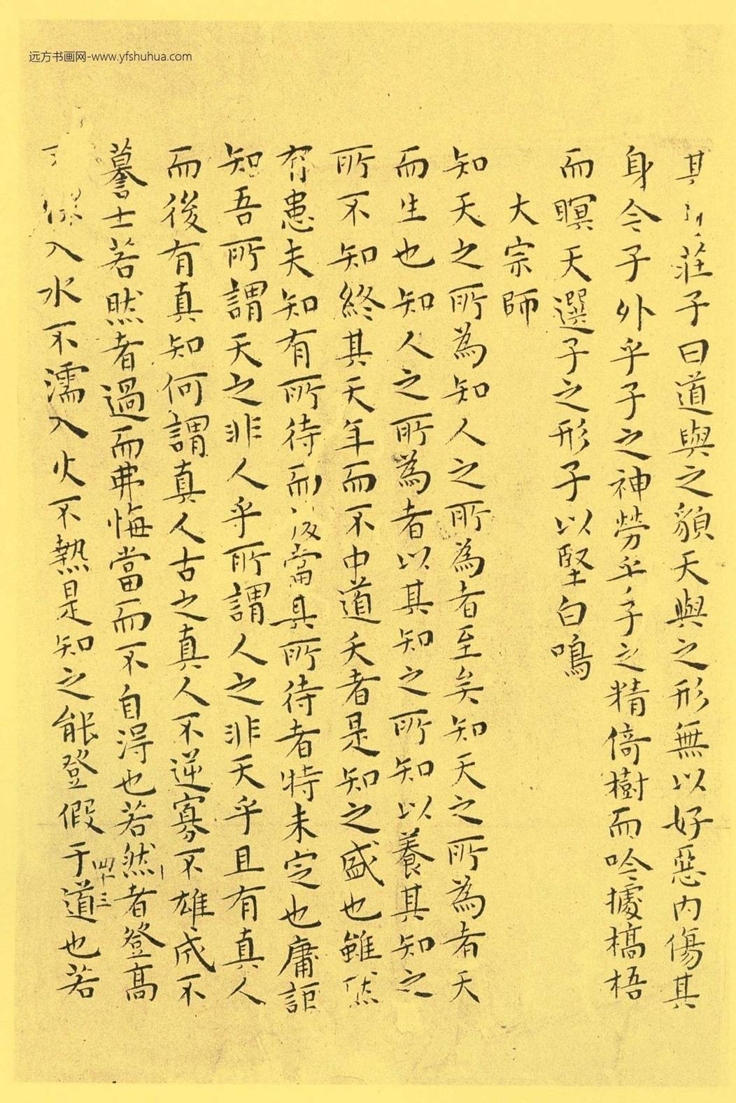 远方书画网-www.yfshuhua.com
其 莊子曰道與之貌天與之形無以好惡內傷其
身今子外乎子之神勞乎子之精倚樹而吟據槁梧
而瞑天選子之形子以堅白鳴
大宗師
知天之所為知人之所為者至矣知天之所為者天
而生也知人之所為者以其知之所知以養其知之
所不知終其天年而不中道夭者是知之盛也雖然
有患夫知有所待而後當其所待者特未定也庸詎
知吾所謂天之非人乎所謂人之非天乎且有真人
而後有真知何謂真人古之真人不逆寡不雄成不
謩士若然者過而弗悔當而不自得也若然者登高
不 入水不濡入火不熱是知之能登假于道也若
四十三